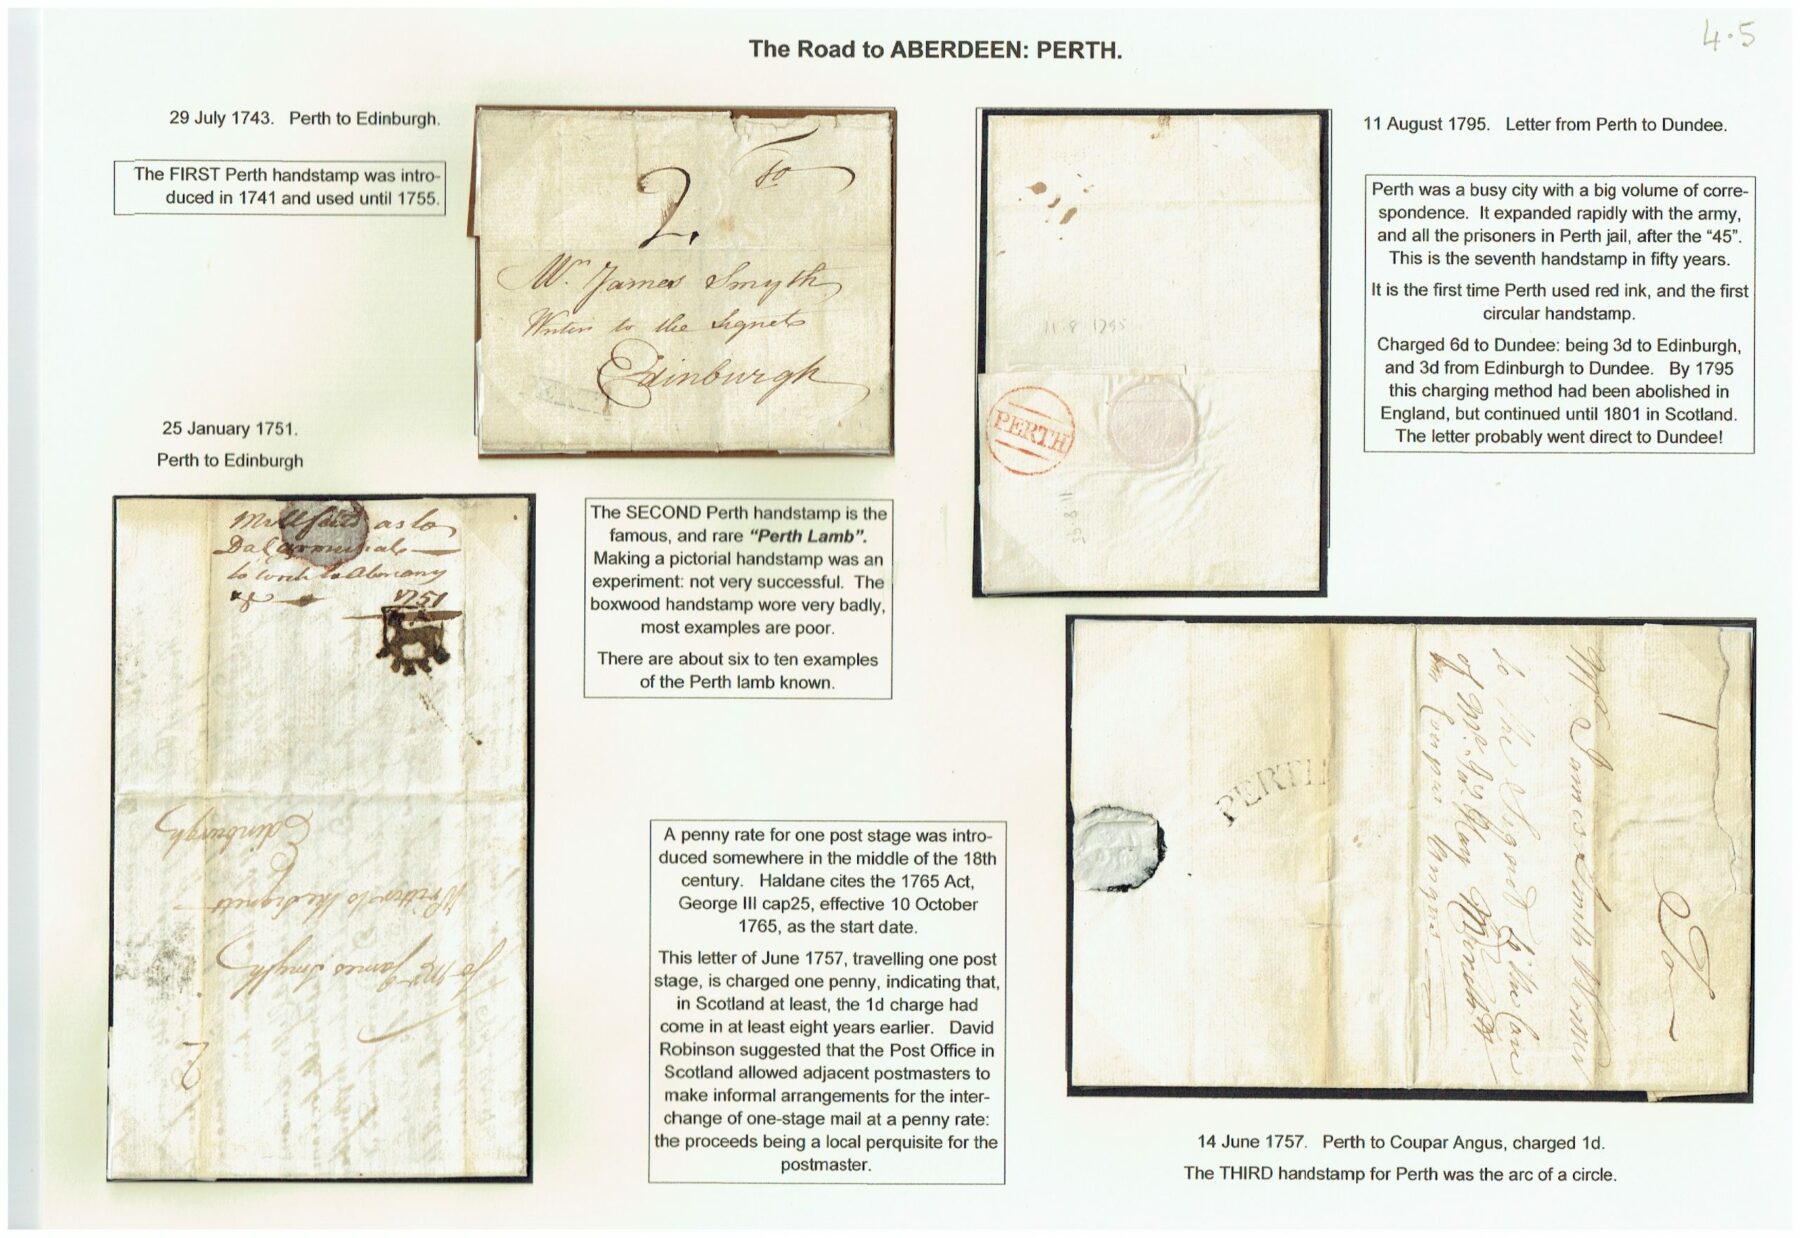 4.5
The Road to ABERDEEN: PERTH.
29 July 1743. Perth to Edinburgh.
The FIRST Perth handstamp was intro-
duced in 1741 and used until 1755.
To
2.
Mr. James Smyth
Writer to the Signet
Edinburgh
25 January 1751.
Perth to Edinburgh
as to
1751
To Mr James Smyth
Writter to the Signett
Edinburgh
2
The SECOND Perth handstamp is the
famous, and rare "Perth Lamb".
Making a pictorial handstamp was an
experiment: not very successful. The
boxwood handstamp wore very badly,
most examples are poor.
There are about six to ten examples
of the Perth lamb known.
A penny rate for one post stage was intro-
duced somewhere in the middle of the 18th
century. Haldane cites the 1765 Act,
George III cap25, effective 10 October
1765, as the start date.
This letter of June 1757, travelling one post
stage, is charged one penny, indicating that,
in Scotland at least, the 1d charge had
come in at least eight years earlier. David
Robinson suggested that the Post Office in
Scotland allowed adjacent postmasters to
make informal arrangements for the inter-
change of one-stage mail at a penny rate:
the proceeds being a local perquisite for the
postmaster.
11.8.1795
PERTH
11 August 1795. Letter from Perth to Dundee.
Perth was a busy city with a big volume of corre-
spondence. It expanded rapidly with the army,
and all the prisoners in Perth jail, after the "45".
This is the seventh handstamp in fifty years.
It is the first time Perth used red ink, and the first
circular handstamp.
Charged 6d to Dundee: being 3d to Edinburgh,
and 3d from Edinburgh to Dundee. By 1795
this charging method had been abolished in
England, but continued until 1801 in Scotland.
The letter probably went direct to Dundee!
PERTH
To
1
James Smith Writer
to the Signet to the Care
of Mr.
Coupar Angus
14 June 1757. Perth to Coupar Angus, charged 1d.
The THIRD handstamp for Perth was the arc of a circle.